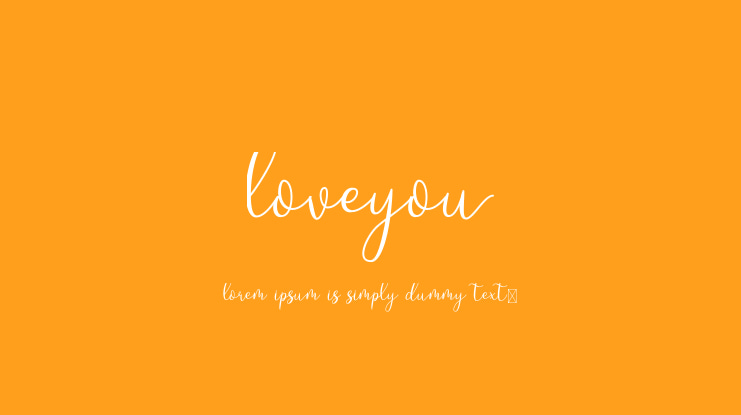 loveyou
lorem ipsum is simply dummy text